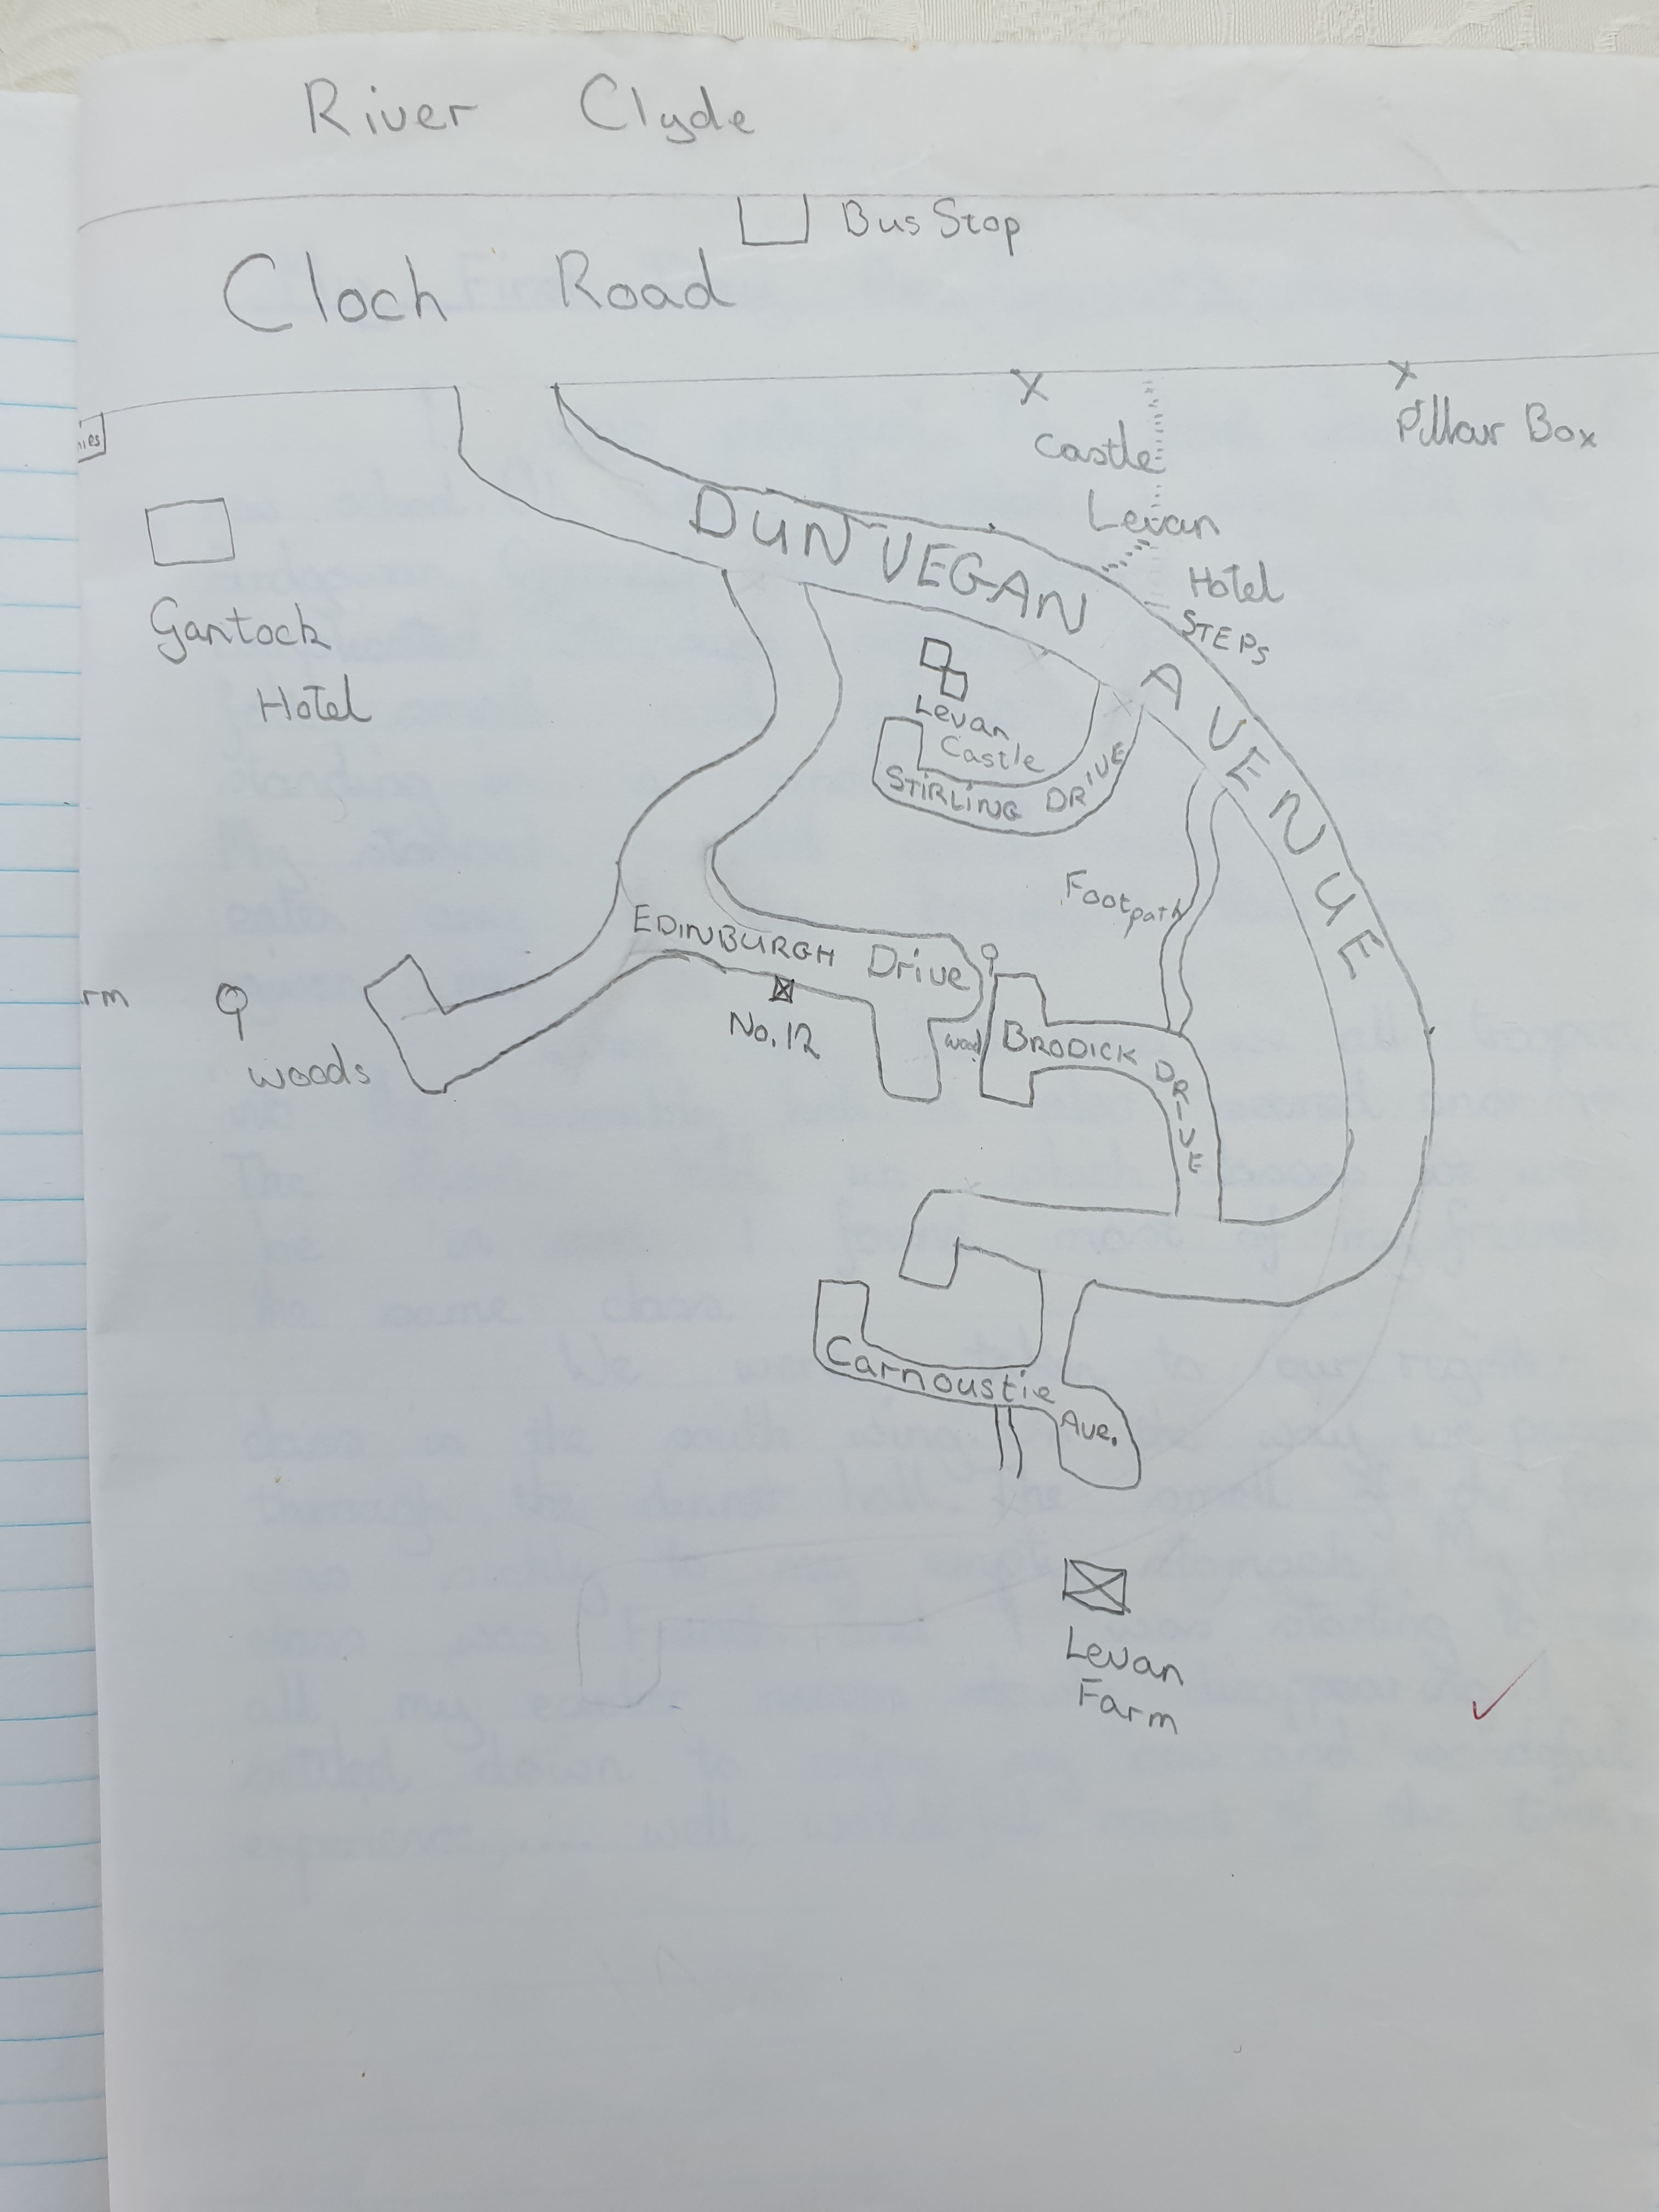 River Clyde
Bus Stop
Cloch Road
Pillar Box
Castle
Levan
Hotel
STEPS
DUNVEGAN AVENUE
Gantock
Hotel
Levan
Castle
STIRLING DRIVE
Footpath
EDINBURGH Drive
rm
woods
No. 12
wood
BRODICK DRIVE
Carnoustie
Ave.
Levan
Farm